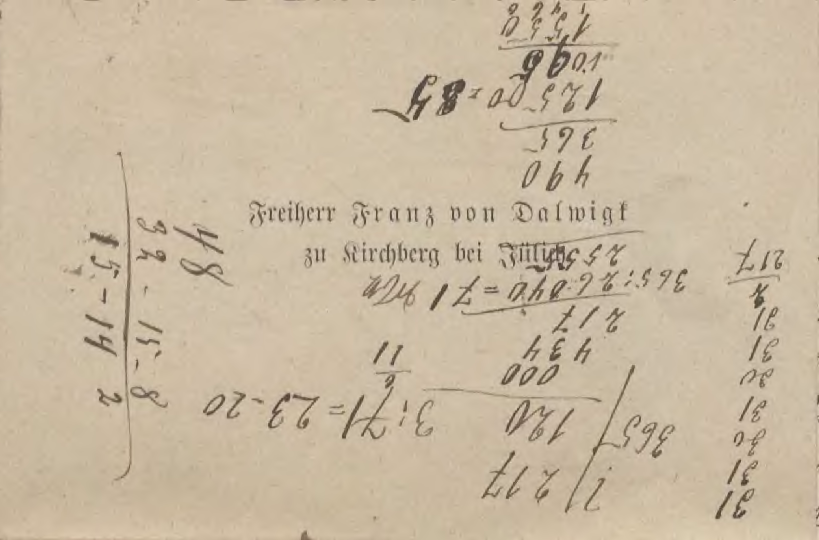 Freiherr Franz von Dalwigk
zu Kirchberg bei Jülich
31
31
30
31
30
31
31
2
217
217
365
120
000
434
217
365 : 26.040 = 71
2555
3 : 71 = 23-20
11
490
365
125
48
32 - 15 - 8
15 - 14 2